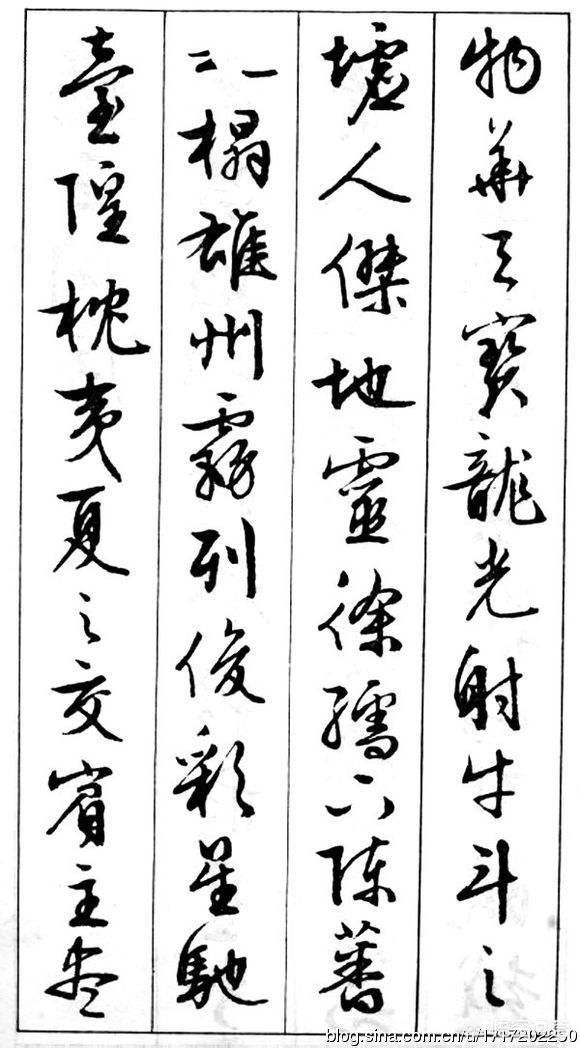 物華天寶龍光射牛斗之
墟人傑地靈徐孺下陳蕃
之榻雄州霧列俊彩星馳
臺隍枕夷夏之交賓主盡
blog.sina.com.cn/u/1717202250